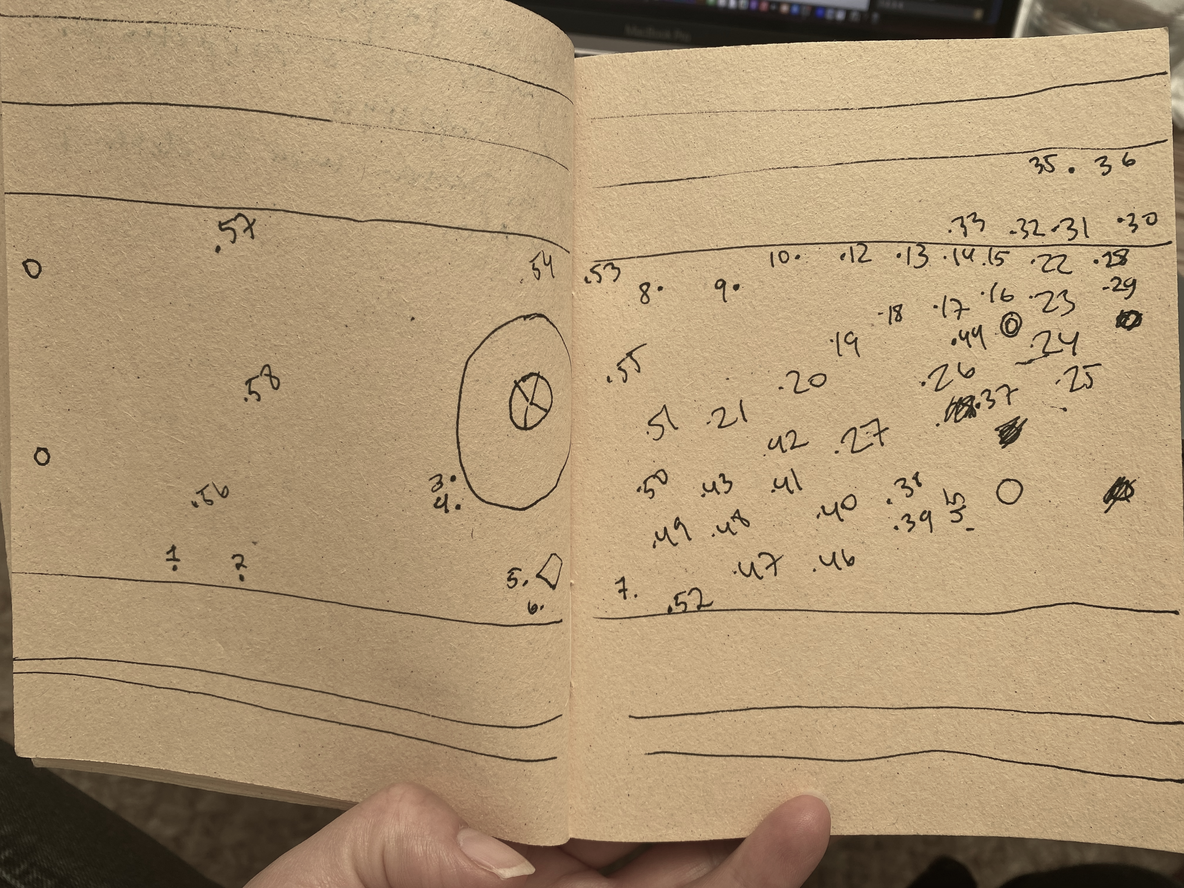 MacBook Pro
.57
.54
.58
3.
4.
.56
1
2
5.
6.
35. 36
.33 .32 .31 .30
.53 8. 9. 10. .12 .13 .14 .15 .22 .28
.18 .17 .16 .23 .29
.19 .44 .24
.55 .20 .26 .25
.51 .21 .37
.42 .27
.50 .43 .41 .38
.49 .48 .40 .39
.47 .46
7. .52